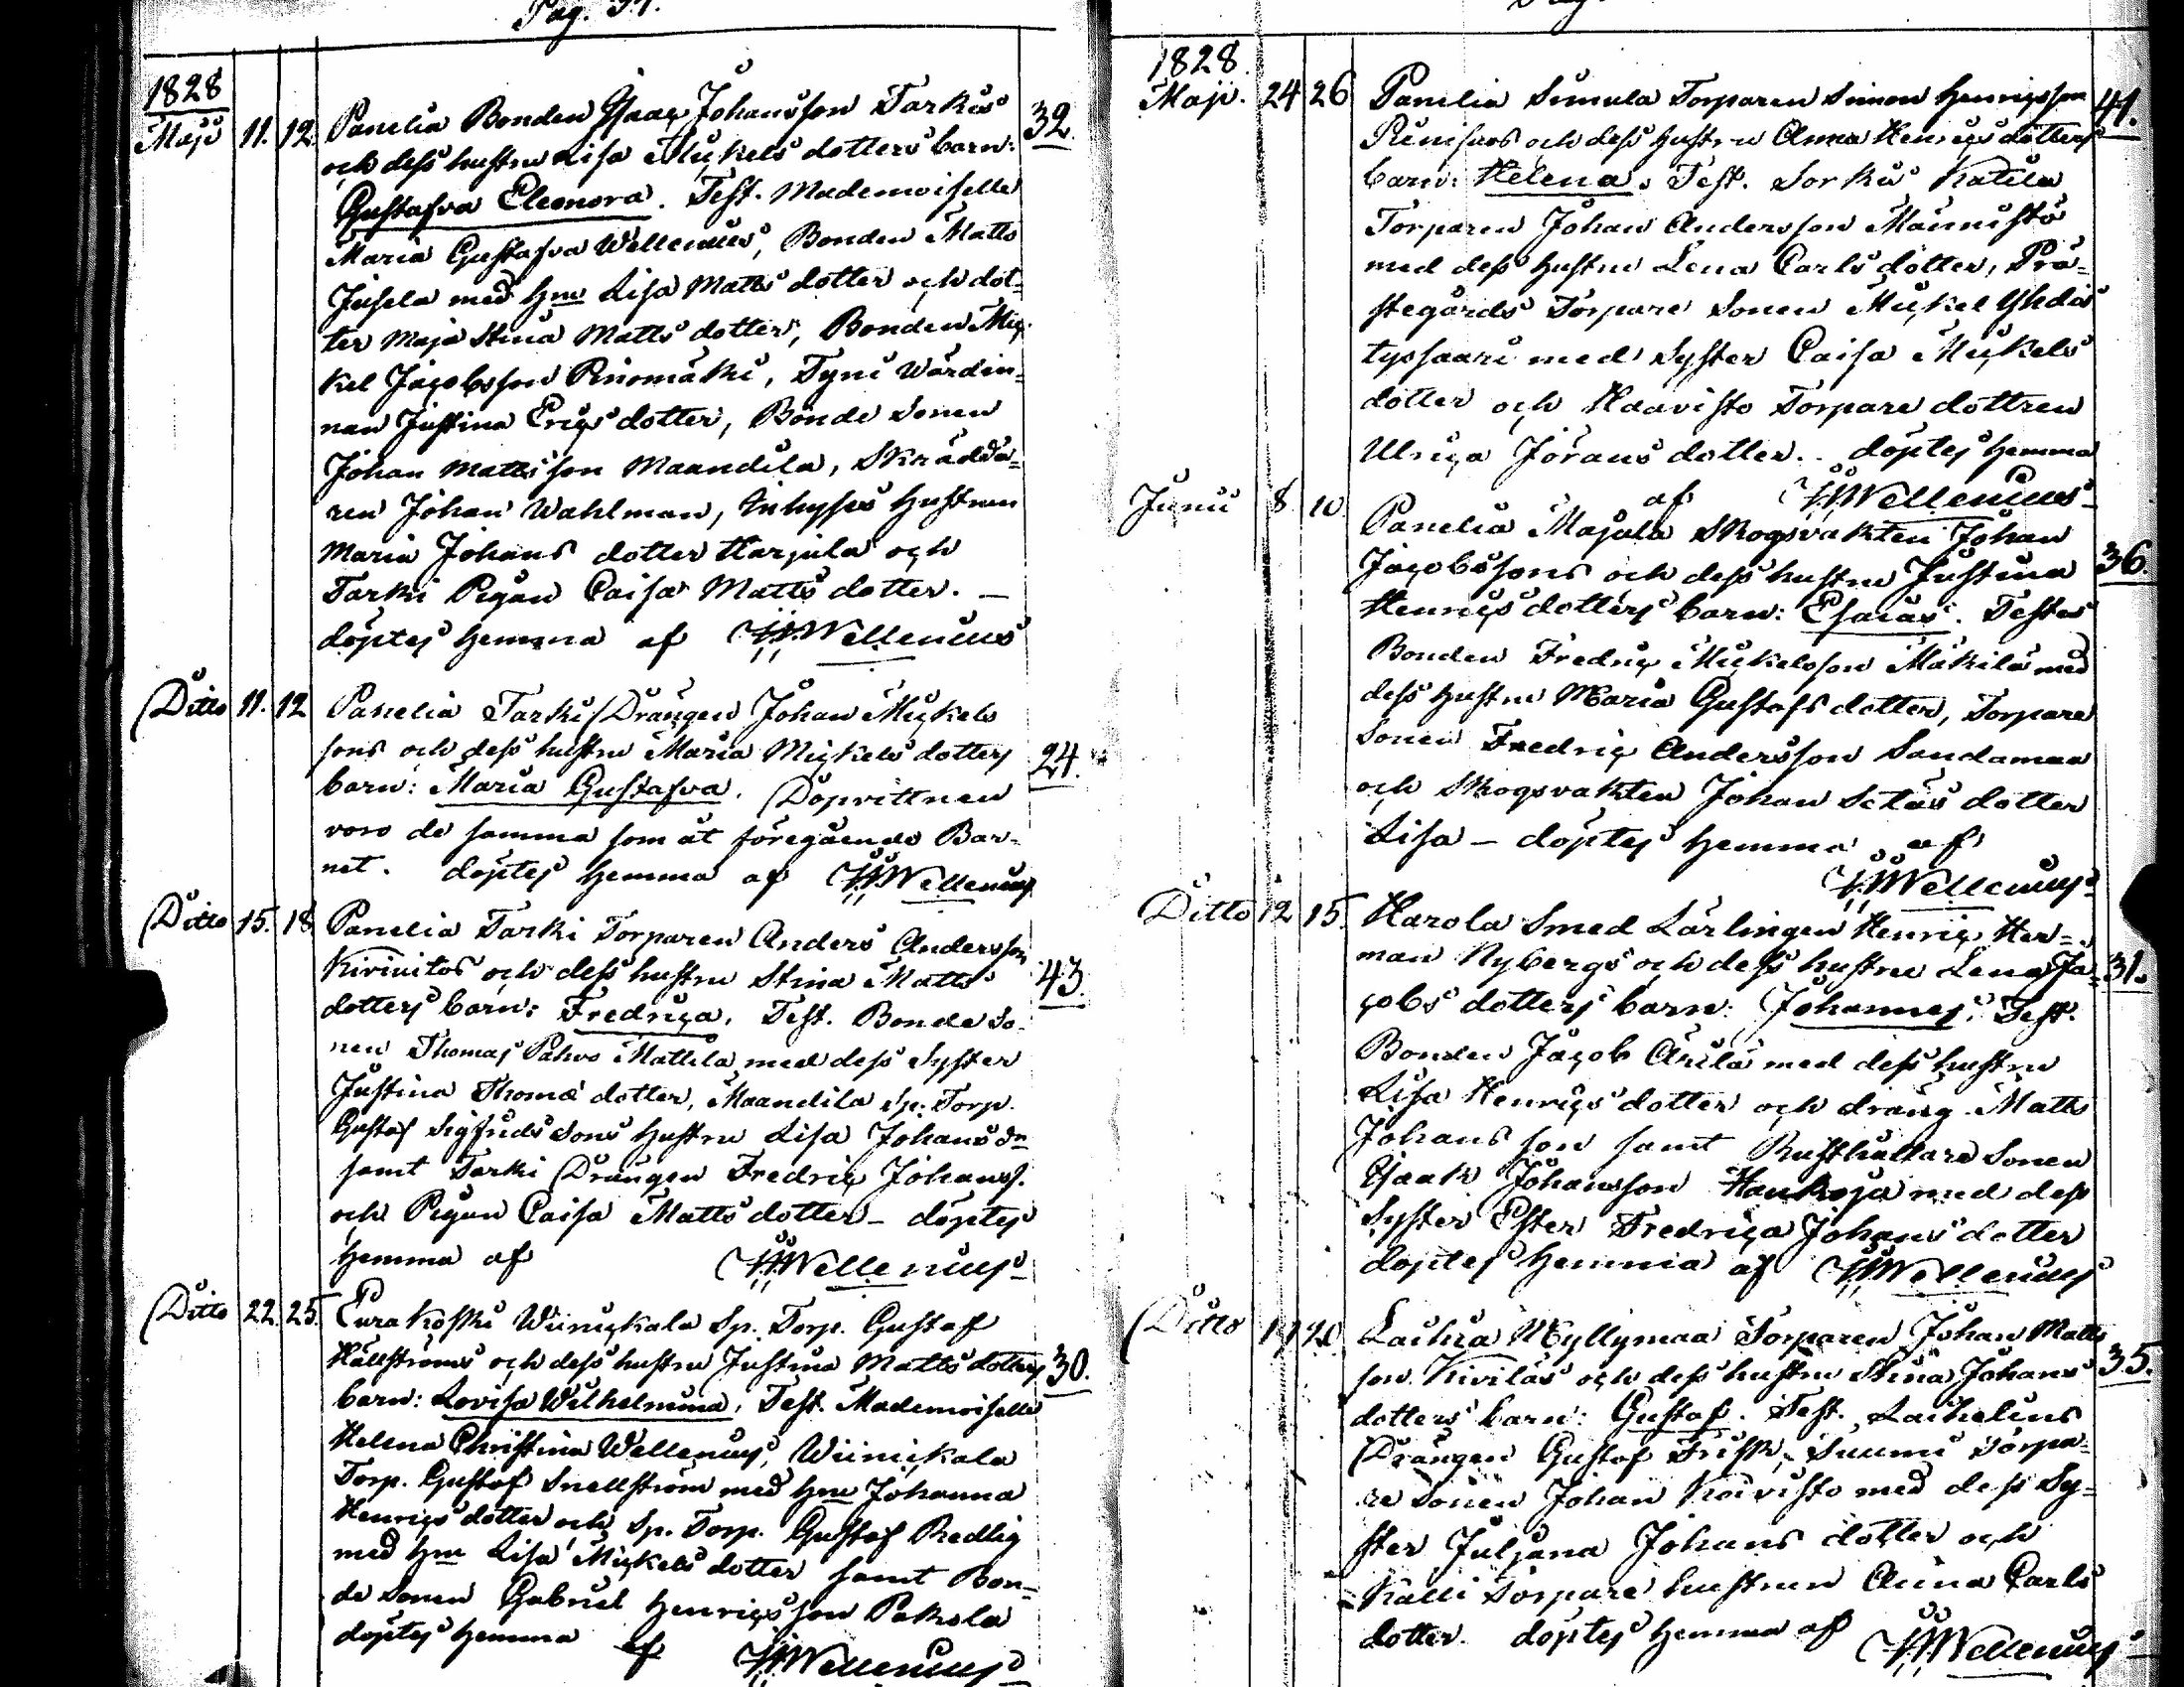 Pag. 37.
1828
Maji 11. 12. Panelia Bonden Isaac Johansson Tarkis 32.
och dess hustru Lisa Mickels dotters barn:
Gustafva Eleonora. Test. Mademoiselle
Maria Gustafva Wellenius, Bonden Matts
Jusela med hru Lisa Matts dotter och dot-
ter Maja Stina Matts dotter, Bonden Mic-
kel Jacobsson Riiomäki, Tyni Wärdin-
nan Justina Erics dotter, Bonde Sonen
Johan Mattsson Maandila, Skrädda-
ren Johan Wahlman, Inhyses Hustrun
Maria Johans dotter Harjula och
Tarki Pigan Caisa Matts dotter. –
döptes hemma af HWellenius
Ditto 11. 12 Panelia Tarki Drängen Johan Mickels
sons och dess hustru Maria Mickels dotters 24.
barn: Maria Gustafva. Dopvittnen
voro de samma som åt föregående Bar-
net. döptes hemma af HWellenius
Ditto 15. 18. Panelia Tarki Torparen Anders Andersson
Kiviniitos och dess hustru Stina Matts 43.
dotters barn: Fredrica. Test. Bonde So-
nen Thomas Pahvo Mattila med dess Syster
Justina Thomæ dotter, Maandila Sp. Torp.
Gustaf Sigfrids Sons Hustru Lisa Johans dr
samt Tarki Drängen Fredric Johanss.
och Pigan Caisa Matts dotter – döptes
hemma af HWellenius
Ditto 22. 25. Eurakoski Wiinickala Sp. Torp. Gustaf
Hällströms och dess hustru Justina Matts dotters 30.
barn: Lovisa Wilhelmina. Test. Mademoiselle
Helena Christina Wellenius, Wiinickala
Torp. Gustaf Snellström med hru Johanna
Henrics dotter och Sp. Torp. Gustaf Redlig
med hru Lisa Mickels dotter samt Bon-
de Sonen Gabriel Henricsson Pakola
döptes hemma af HWellenius
1828.
Maji. 24 26 Panelia Simula Torparen Simon Henricsson 41.
och dess hustru Anna Henrics dotters
barn: Helena. Test. Sorkis Katila
Torparen Johan Andersson Männistö
med dess hustru Lena Carls dotter, Prä-
stegårds Torpare Sonen Mickel Yhdis
tyssaari med Syster Caisa Mickels
dotter och Haavisto Torpare dottren
Ulrica Jörans dotter. döptes hemma
af HWellenius
Junii 8. 10. Panelia Majala Skogsvakten Johan
Jacobssons och dess hustru Justina 36.
Henrics dotters barn: Esaias. Testes
Bonden Fredric Mickelsson Mäkilä med
dess Hustru Maria Gustafs dotter, Torpare
Sonen Fredric Andersson Sandamaa
och Skogsvakten Johan Setäs dotter
Lisa – döptes hemma af
HWellenius
Ditto 12 15. Harola Smed Lärlingen Henric Her-
man Nybergs och dess hustru Lena Ja- 31.
cobs dotters barn: Johannes. Test.
Bonden Jacob Arila med dess hustru
Lisa Henrics dotter och dräng Matts
Johans son samt Rusthållare Sonen
Isaak Johansson Haukoja med dess
Syster Ester Fredrica Johans dotter
döptes hemma af HWellenius
Ditto Laihia Myllymaa Torparen Johan Matts
son Kivilas och dess hustru Stina Johans 35.
dotters barn: Gustaf. Test. Laihelins
Drängen Gustaf Frisk, Suumi Torpa-
re Sonen Johan Koivisto med dess Sy-
ster Juljana Johans dotter och
Kalli Torpare hustrun Anna Carls
dotter. döptes hemma af HWellenius